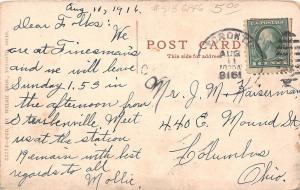 Aug. 11, 1916.
500
Dear Folks:
We
are at Finesman's
and we will leave
Sunday 1.53 in
the afternoon from
Steubenville. Meet
us at the station
19 remain with best
regards to all
Mollie
POST CARD
AUG
11
1916
Mr. J. M. Kaiserman
440 E. Mound St
Columbus
Ohio.